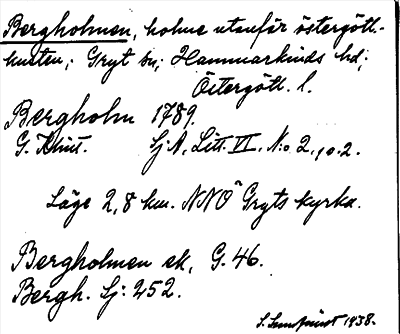 Bergholmen, holme utanför östergötl.-
kusten; Gryt sn; Hammarkinds hd;
Östergötl. l.
Bergholm 1789.
G. Klint. Sj. A, Litt. VI. N:o 2, p. 2.
Läge 2,8 km. NNO Gryts kyrka.
Bergholmen ek, G. 46.
Bergh. Sj: 252.
1938.